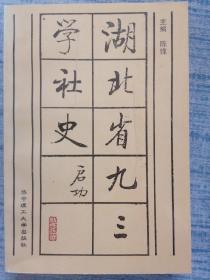 湖北省九三
学社史
启功
主编 陈锋
华中理工大学出版社